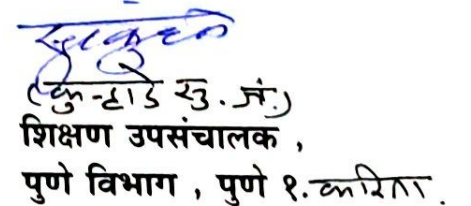 (कु-हाडे सु. जं.)
शिक्षण उपसंचालक ,
पुणे विभाग , पुणे १. करिता.